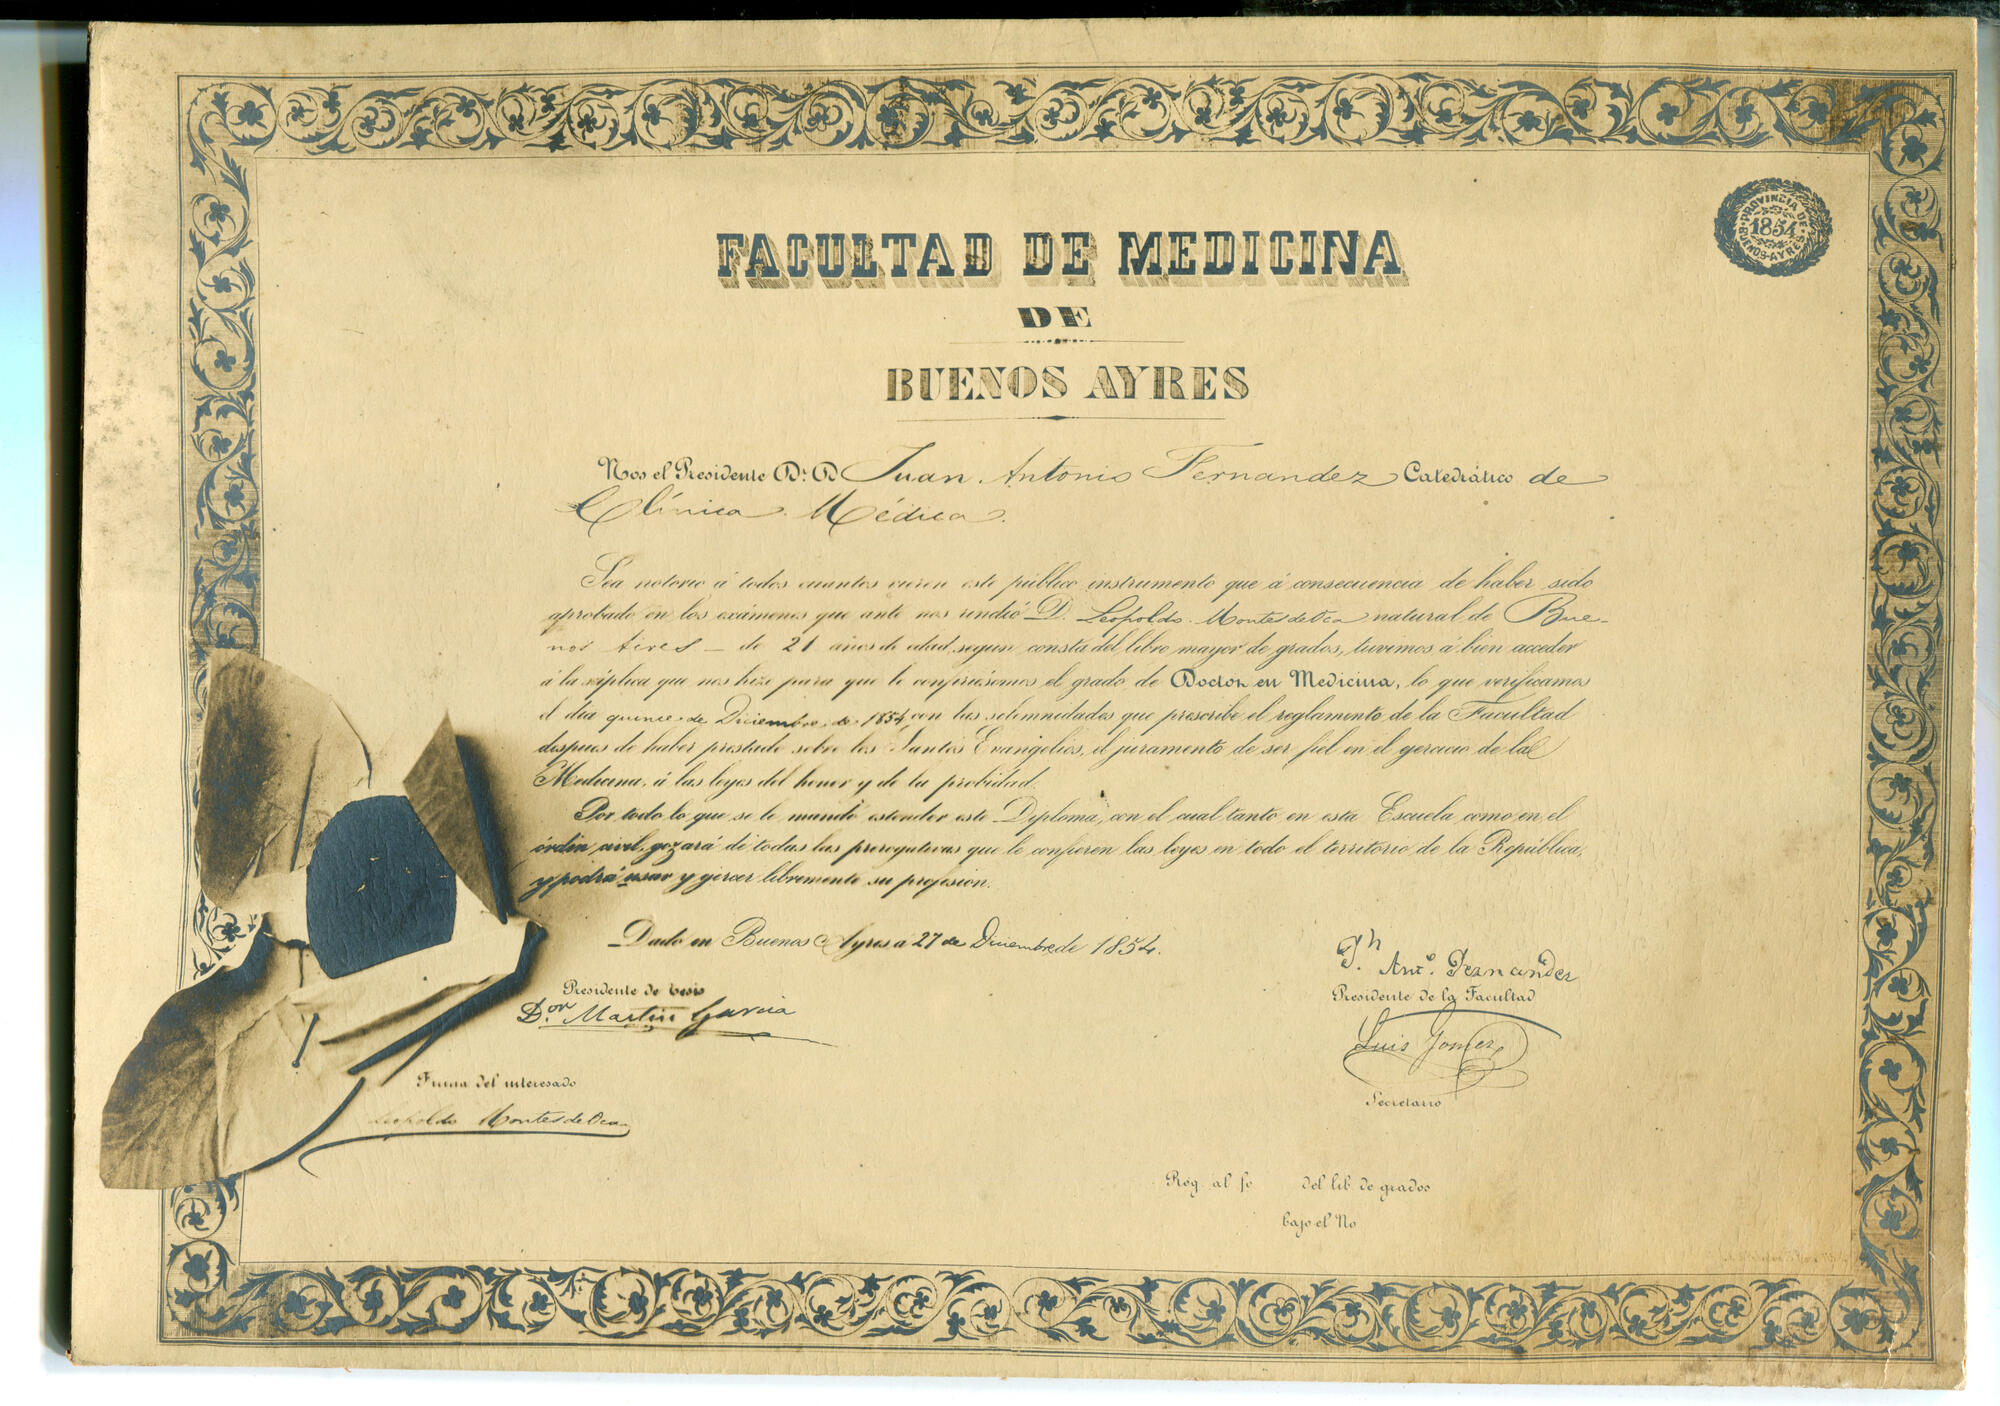 FACULTAD DE MEDICINA
PROVINCIA DE BUENOS-AYRES
1854
DE
BUENOS AYRES
Nos el Presidente Dr. D Juan Antonio Fernandez Catedrático de
Clínica Médica.
Sea notorio á todos cuantos vieren este público instrumento que á consecuencia de haber sido
aprobado en los exámenes que ante nos rindió D. Leopoldo Montes de Oca natural de Bue-
nos Aires – de 21 años de edad, segun consta del libro mayor de grados, tuvimos á bien acceder
á la súplica que nos hizo para que le confiriesemos el grado de Doctor en Medicina, lo que verificamos
el dia quince de Diciembre de 1854, con las solemnidades que prescribe el reglamento de la Facultad
despues de haber prestado sobre los Santos Evangelios, el juramento de ser fiel en el ejercicio de la
Medicina, á las leyes del honor y de la probidad.
Por todo lo que se le mandó estender este Diploma, con el cual tanto en esta Escuela como en el
órden civil, gozará de todas las prerogativas que le confieren las leyes en todo el territorio de la República,
y podrá usar y ejercer libremente su profesion.
Dado en Buenos Ayres á 27 de Diciembre de 1854.
Jn Anto. Fernandez
Presidente de la Facultad
Presidente de tesis
Dor. Martin Garcia
Luis Gomez
Secretario
Firma del interesado
Leopoldo Montes de Oca
Reg. al fo del lib. de grados
bajo el No